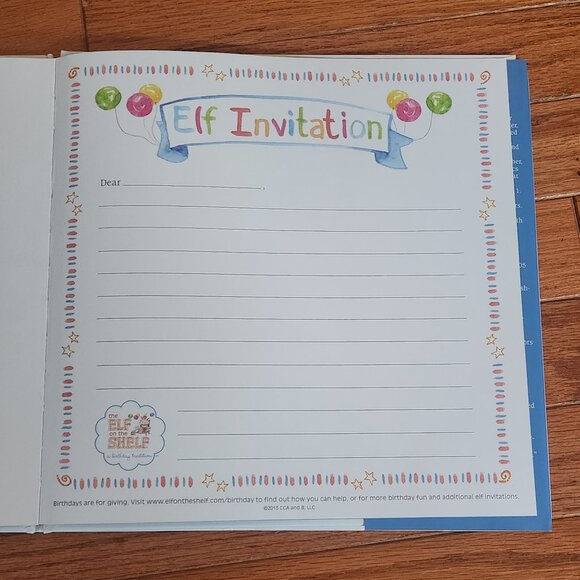 Elf Invitation
Dear ,
the
ELF
on the
SHELF
a birthday tradition
Birthdays are for giving. Visit www.elfontheshelf.com/birthday to find out how you can help, or for more birthday fun and additional elf invitations.
©2013 CCA and B, LLC